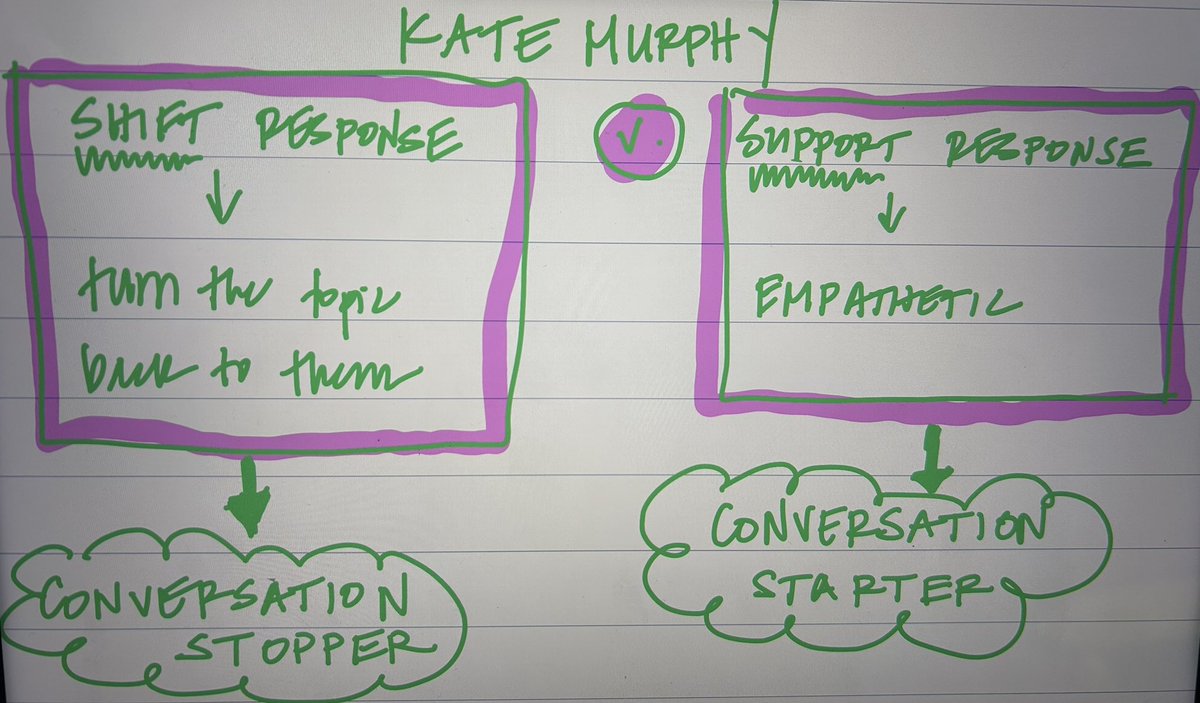 KATE MURPHY
SHIFT RESPONSE
turn the topic
back to them
CONVERSATION
STOPPER
SUPPORT RESPONSE
EMPATHETIC
CONVERSATION
STARTER